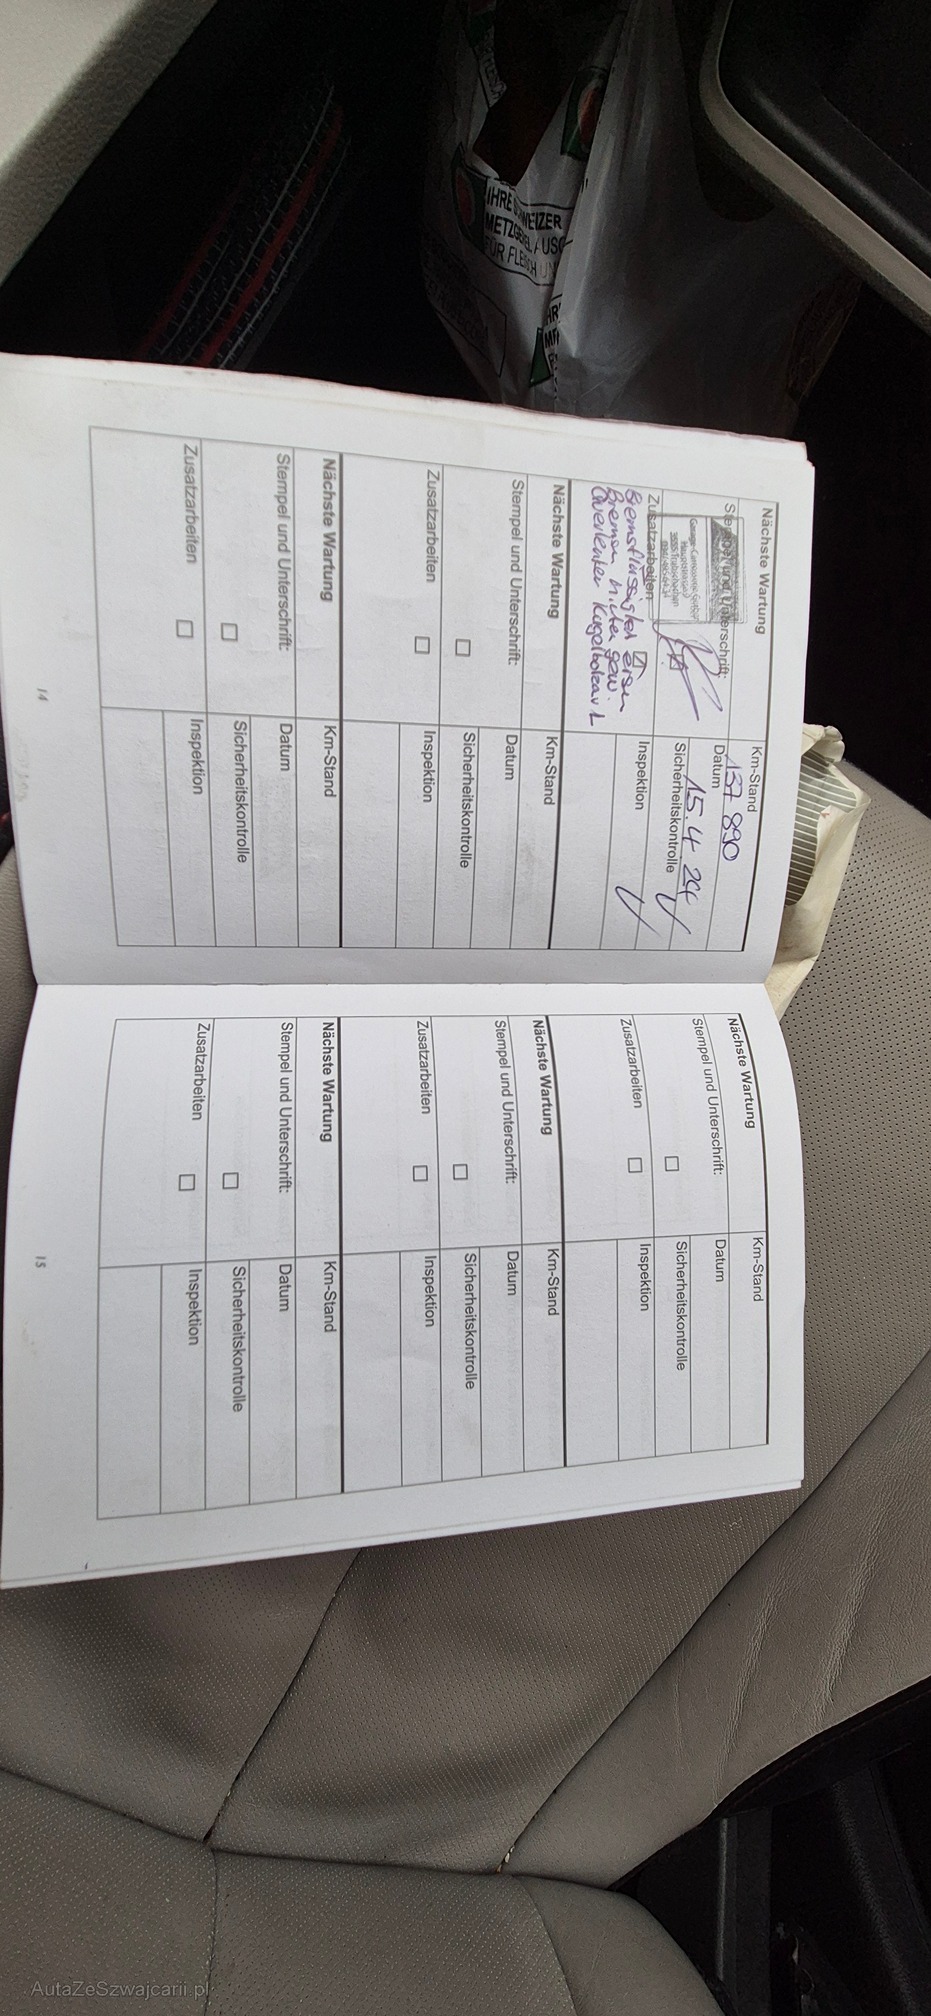 IHRE SCHWEIZER
METZGEREI
FÜR FLEISCH
Nächste Wartung
Km-Stand
137 890
Stempel und Unterschrift:
Datum
15.4 24
Sicherheitskontrolle
Zusatzarbeiten
Inspektion
Bremsflüssigkeit ersu
Bremsen hinten gew.
Querlenker Kugelbolzen L
Nächste Wartung
Km-Stand
Stempel und Unterschrift:
Datum
Sicherheitskontrolle
Zusatzarbeiten
Inspektion
Nächste Wartung
Km-Stand
Stempel und Unterschrift:
Datum
Sicherheitskontrolle
Zusatzarbeiten
Inspektion
14
Nächste Wartung
Km-Stand
Stempel und Unterschrift:
Datum
Sicherheitskontrolle
Zusatzarbeiten
Inspektion
Nächste Wartung
Km-Stand
Stempel und Unterschrift:
Datum
Sicherheitskontrolle
Zusatzarbeiten
Inspektion
Nächste Wartung
Km-Stand
Stempel und Unterschrift:
Datum
Sicherheitskontrolle
Zusatzarbeiten
Inspektion
15
AutaZeSzwajcarii.pl